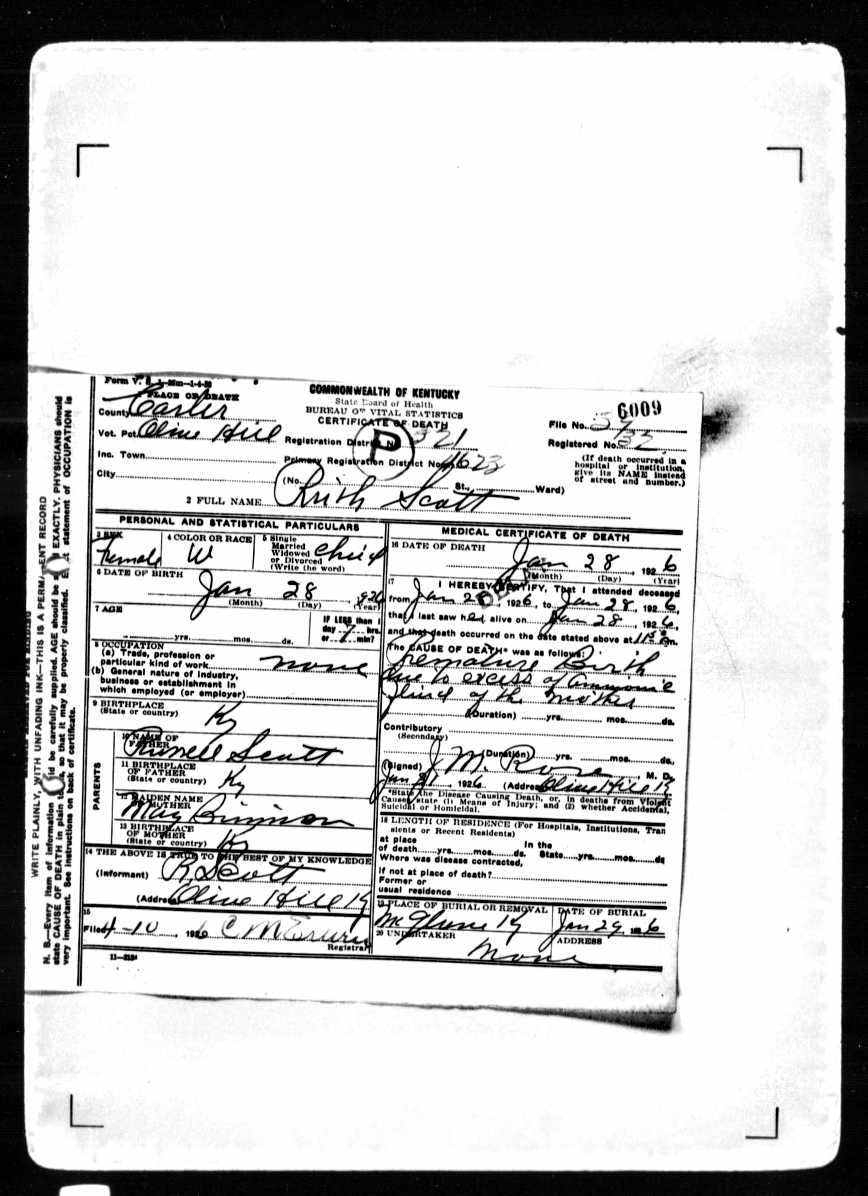 Form V. S. 1-20m-1-4-20
COMMONWEALTH OF KENTUCKY
State Board of Health
BUREAU OF VITAL STATISTICS
CERTIFICATE OF DEATH
6009
PLACE OF DEATH
County Carter
Vot. Pct. Olive Hill
Inc. Town
City
Registration District No. 321
Primary Registration District No. 1623
P
File No.
Registered No. 32
(If death occurred in a
hospital or institution,
give its NAME instead
of street and number.)
(No. St., Ward)
2 FULL NAME Ruth Scott
PERSONAL AND STATISTICAL PARTICULARS
3 SEX Female
4 COLOR OR RACE W
5 Single
Married
Widowed
or Divorced
(Write the word) Child
6 DATE OF BIRTH
Jan 28, 1926
(Month) (Day) (Year)
7 AGE
yrs. mos. ds.
IF LESS than 1
day 7 hrs.
or min?
8 OCCUPATION
(a) Trade, profession or
particular kind of work none
(b) General nature of industry,
business or establishment in
which employed (or employer)
9 BIRTHPLACE
(State or country) Ky
PARENTS
10 NAME OF
FATHER Russell Scott
11 BIRTHPLACE
OF FATHER
(State or country) Ky
12 MAIDEN NAME
OF MOTHER May
13 BIRTHPLACE
OF MOTHER
(State or country) Ky
14 THE ABOVE IS TRUE TO THE BEST OF MY KNOWLEDGE
(Informant) R. Scott
(Address) Olive Hill Ky
15
Filed 4-10, 1926 C M
Registrar
11—3184
MEDICAL CERTIFICATE OF DEATH
16 DATE OF DEATH
Jan 28, 1926
(Month) (Day) (Year)
17 I HEREBY CERTIFY, That I attended deceased
from Jan 28 1926, to Jan 28, 1926,
that I last saw her alive on Jan 28, 1926,
and that death occurred on the date stated above at 11 m.
The CAUSE OF DEATH* was as follows:
Premature Birth
due to excess of
fluid of the mother
(Duration) yrs. mos. ds.
Contributory
(Secondary)
(Duration) yrs. mos. ds.
(Signed) J M. Rose M. D.
Jan, 1926 (Address) Olive Hill K
*State the Disease Causing Death, or, in deaths from Violent
Causes, state (1) Means of Injury; and (2) whether Accidental,
Suicidal or Homicidal.
18 LENGTH OF RESIDENCE (For Hospitals, Institutions, Tran
sients or Recent Residents)
At place In the
of death yrs. mos. ds. State yrs. mos. ds
Where was disease contracted,
if not at place of death?
Former or
usual residence
19 PLACE OF BURIAL OR REMOVAL
McGlone Ky
DATE OF BURIAL
Jan 29, 1926
20 UNDERTAKER
None
ADDRESS
WRITE PLAINLY, WITH UNFADING INK—THIS IS A PERMANENT RECORD
N. B.—Every item of information should be carefully supplied. AGE should be stated EXACTLY. PHYSICIANS should
state CAUSE OF DEATH in plain terms, so that it may be properly classified. Exact statement of OCCUPATION is
very important. See instructions on back of certificate.